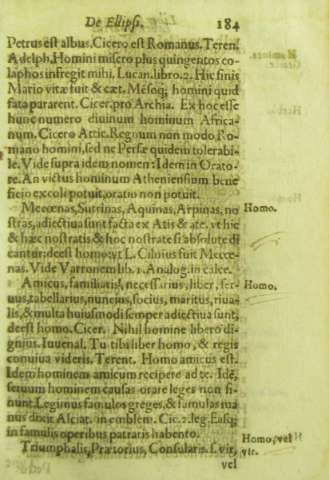 De Ellipsi. 184
Petrus est albus. Cicero est Romanus. Teren.
Adelph. Homini misero plus quingentos co-
laphos infregit mihi. Lucan. libro. 2. Hic finis
Mario vitæ fuit & cæt. Méseq; homini quid
fata pararent. Cicer. pro Archia. Ex hoc esse
hunc numero diuinum hominum Africa-
num. Cicero Attic. Regnum non modo Ro-
mano homini, sed ne Persæ quidem tolerabi-
le. Vide supra idem nomen: Idem in Orato-
re. An victus hominum Atheniensium bene
ficio excoli potuit, oratio non potuit.
Mecœnas, Sutrinas, Aquinas, Arpinas, no
stras, adiectiua sunt facta ex Atis & ate. vt hic
& hæc nostratis & hoc nostrate si absolute di
cantur: deest homo: vt L. Cilnius fuit Mecœ-
nas. Vide Varronem lib. 1. Analog. in calce.
Homo.
Amicus, familiaris, necessarius, liber, ser-
uus, tabellarius, nuncius, socius, maritus, riua-
lis, & multa huiusmodi semper adiectiua sunt,
deest homo. Cicer. Nihil homine libero di-
gnius. Iuuenal. Tu tibi liber homo, & regis
conuiua videris. Terent. Homo amicus est.
Idem hominem amicum recipere ad te. Idē,
seruum hominem causas orare leges non si-
nunt. Legimus famulos greges, & famulas ma
nus dixit Alciat. in emblem. Cic. 2. leg. Easq;
in famulis operibus patratis habento.
Homo.
Triumphalis, Prætorius, Consularis. f. vir,
Homo, vel
vir.
vel